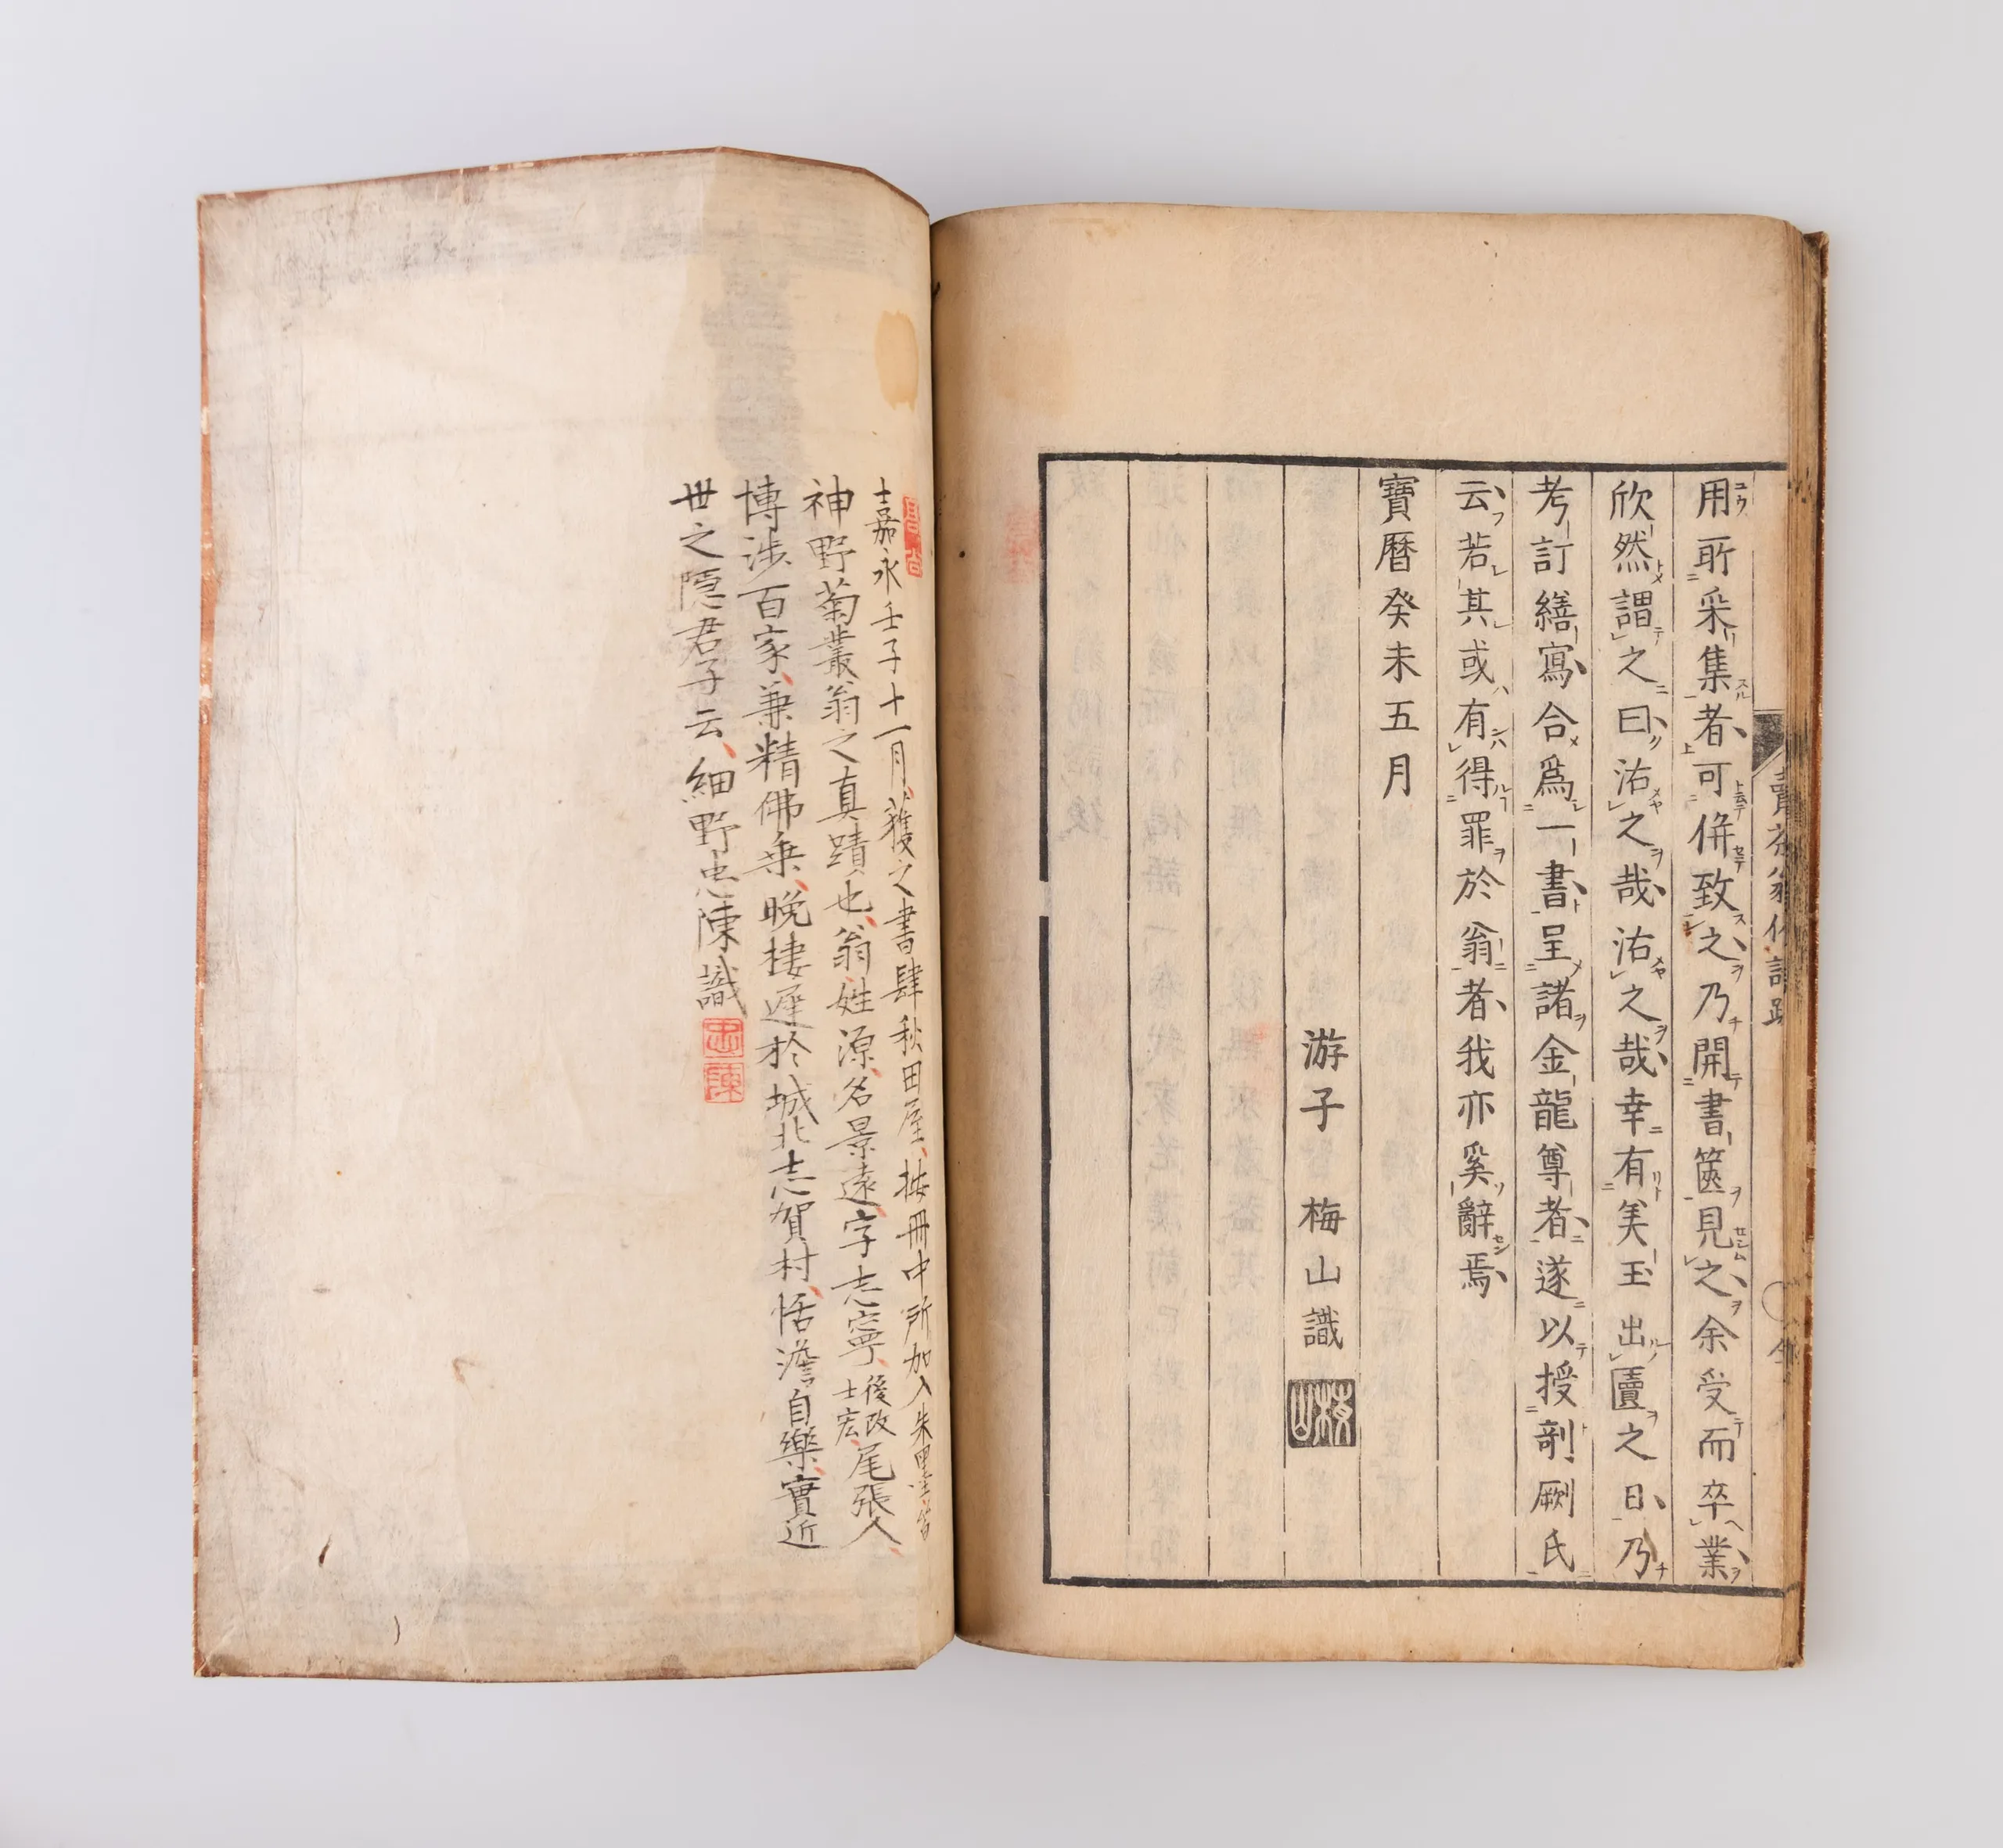 用所采集者可併致之乃開書篋見之余受而卒業
欣然謂之曰沽之哉沽之哉幸有美玉出匵之日乃
考訂繕寫合爲一書呈諸金龍尊者遂以授剞劂氏
云若其或有得罪於翁者我亦奚辭焉
寶曆癸未五月
游子 梅山識
嘉永壬子十一月獲之書肆秋田屋按冊中所加入朱墨
神野菊叢翁之真蹟也翁姓源名景遠字志寧後改士宏尾張人
博涉百家兼精佛乗晩棲遲於城北志賀村恬澹自樂實近
世之隠君子云細野忠陳識
忠陳